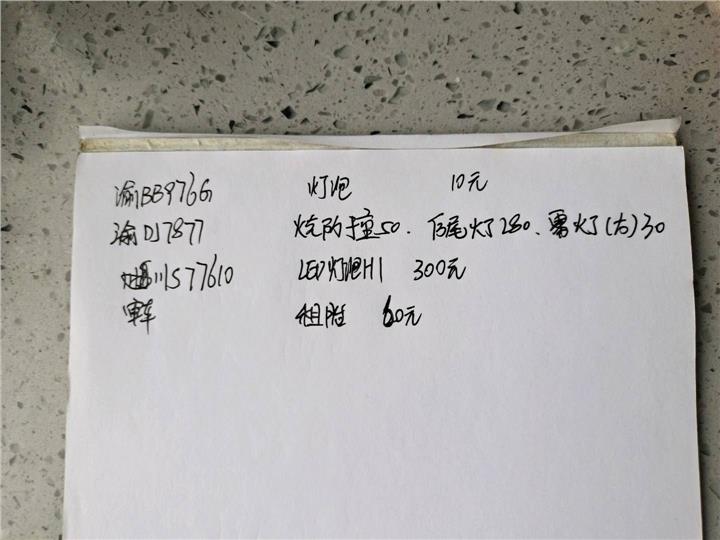 渝BB976G 灯泡 10元
渝DJ7877 烧防撞50、后尾灯280、雾灯(右)30
川S77610 LED灯泡H1 300元
单车 租胜 60元